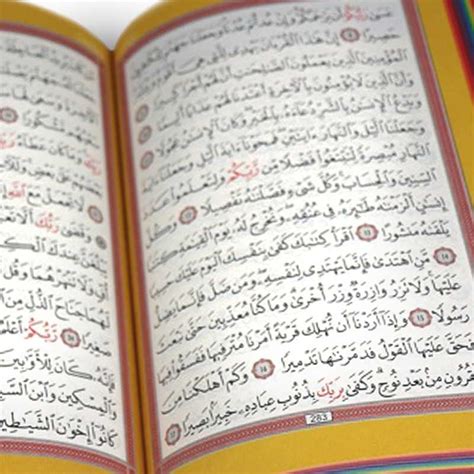 عَسَىٰ رَبُّكُمْ أَن يَرْحَمَكُمْ وَإِنْ عُدتُّمْ عُدْنَا وَجَعَلْنَا جَهَنَّمَ لِلْكَٰفِرِينَ
حَصِيرًا ٨ إِنَّ هَٰذَا الْقُرْءَانَ يَهْدِى لِلَّتِى هِىَ أَقْوَمُ وَيُبَشِّرُ
الْمُؤْمِنِينَ الَّذِينَ يَعْمَلُونَ الصَّٰلِحَٰتِ أَنَّ لَهُمْ أَجْرًا كَبِيرًا ٩
وَأَنَّ الَّذِينَ لَا يُؤْمِنُونَ بِالْءَاخِرَةِ أَعْتَدْنَا لَهُمْ عَذَابًا أَلِيمًا ١٠
وَيَدْعُ الْإِنسَٰنُ بِالشَّرِّ دُعَآءَهُۥ بِالْخَيْرِ وَكَانَ الْإِنسَٰنُ عَجُولًا ١١
وَجَعَلْنَا الَّيْلَ وَالنَّهَارَ ءَايَتَيْنِ فَمَحَوْنَآ ءَايَةَ الَّيْلِ وَجَعَلْنَآ ءَايَةَ
النَّهَارِ مُبْصِرَةً لِّتَبْتَغُوا۟ فَضْلًا مِّن رَّبِّكُمْ وَلِتَعْلَمُوا۟ عَدَدَ
السِّنِينَ وَالْحِسَابَ وَكُلَّ شَىْءٍ فَصَّلْنَٰهُ تَفْصِيلًا ١٢ وَكُلَّ
إِنسَٰنٍ أَلْزَمْنَٰهُ طَٰٓئِرَهُۥ فِى عُنُقِهِۦ وَنُخْرِجُ لَهُۥ يَوْمَ الْقِيَٰمَةِ كِتَٰبًا
يَلْقَىٰهُ مَنشُورًا ١٣ اقْرَأْ كِتَٰبَكَ كَفَىٰ بِنَفْسِكَ الْيَوْمَ عَلَيْكَ حَسِيبًا ١٤
مَّنِ اهْتَدَىٰ فَإِنَّمَا يَهْتَدِى لِنَفْسِهِۦ وَمَن ضَلَّ فَإِنَّمَا يَضِلُّ
عَلَيْهَا وَلَا تَزِرُ وَازِرَةٌ وِزْرَ أُخْرَىٰ وَمَا كُنَّا مُعَذِّبِينَ حَتَّىٰ نَبْعَثَ
رَسُولًا ١٥ وَإِذَآ أَرَدْنَآ أَن نُّهْلِكَ قَرْيَةً أَمَرْنَا مُتْرَفِيهَا فَفَسَقُوا۟ فِيهَا
فَحَقَّ عَلَيْهَا الْقَوْلُ فَدَمَّرْنَٰهَا تَدْمِيرًا ١٦ وَكَمْ أَهْلَكْنَا مِنَ
الْقُرُونِ مِنۢ بَعْدِ نُوحٍ وَكَفَىٰ بِرَبِّكَ بِذُنُوبِ عِبَادِهِۦ خَبِيرًۢا بَصِيرًا ١٧
283
رَبِّكَ
لَّا تَجْعَلْ مَعَ اللَّهِ
وَقَضَىٰ رَبُّكَ أَلَّا
عِندَكَ الْ
وَلَا تَنْهَرْهُمَا وَقُل
لَهُمَا جَنَاحَ الذُّلِّ مِنَ
صَغِيرًا ٢٤ رَّبُّكُمْ أَعْلَمُ
فَإِنَّهُۥ كَانَ لِلْأَوَّٰبِينَ
وَالْمِسْكِينَ وَابْنَ السَّبِيلِ
كَانُوٓا۟ إِخْوَٰنَ الشَّيَٰطِينِ